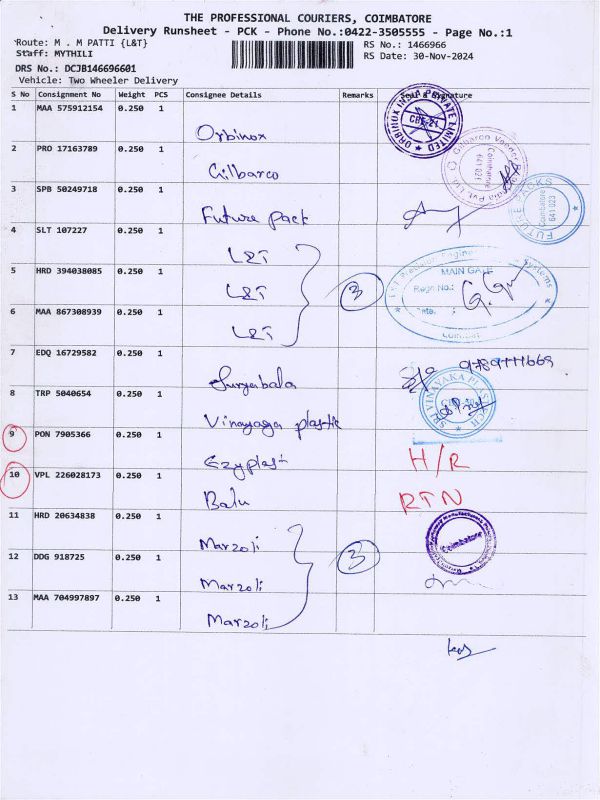 THE PROFESSIONAL COURIERS, COIMBATORE
Delivery Runsheet - PCK - Phone No.:0422-3505555 - Page No.:1
Route: M . M PATTI {L&T} RS No.: 1466966
Staff: MYTHILI RS Date: 30-Nov-2024
DRS No.: DCJB146696601
Vehicle: Two Wheeler Delivery
S No Consignment No Weight PCS Consignee Details Remarks Seal & Signature
1 MAA 575912154 0.250 1 Orbinox
ORBINOX INDIA PRIVATE LIMITED CBE-21
2 PRO 17163789 0.250 1 Gilbarco
Coimbatore 641 021
3 SPB 50249718 0.250 1 Future pack
FUTURE PACKS Coimbatore 641 023
4 SLT 107227 0.250 1 L&T
5 HRD 394038085 0.250 1 L&T 3
L&T Precision Engineering Systems MAIN GATE Regn No.: Date. Coimbatore
6 MAA 867308939 0.250 1 L&T
7 EDQ 16729582 0.250 1 Suryabala
8 TRP 5040654 0.250 1 Vinayaga plastic
SRI VINAYAKA PLASTECH
9 PON 7905366 0.250 1 Ezyplast H/R
10 VPL 226028173 0.250 1 Balu RTN
11 HRD 20634838 0.250 1 Marzoli
Coimbatore
12 DDG 918725 0.250 1 Marzoli 3
13 MAA 704997897 0.250 1 Marzoli